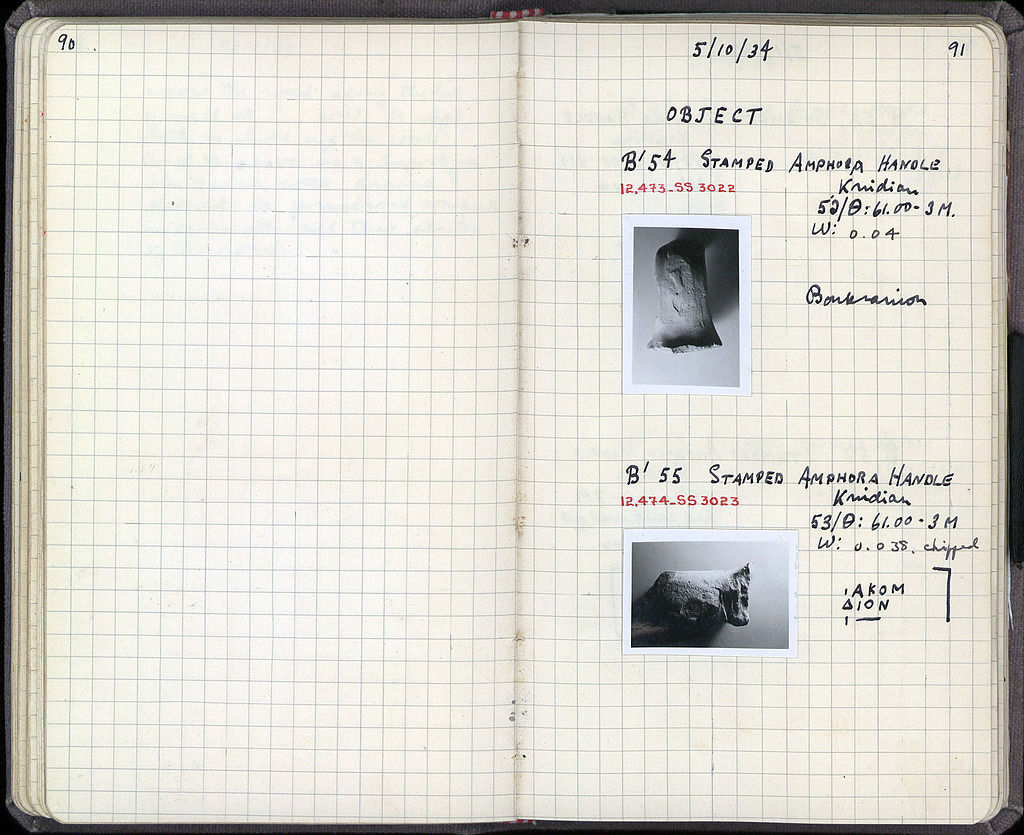 90
5/10/34
91
OBJECT
B' 54 STAMPED AMPHORA HANDLE
12.473-SS 3022
Knidian
53/Θ: 61.00 - 3 M.
W: 0.04
Boukranion
B' 55 STAMPED AMPHORA HANDLE
12.474-SS 3023
Knidian
53/Θ: 61.00 - 3 M
W: 0.038. chipped
ΑΚΟΜ
ΔΙΟΝ